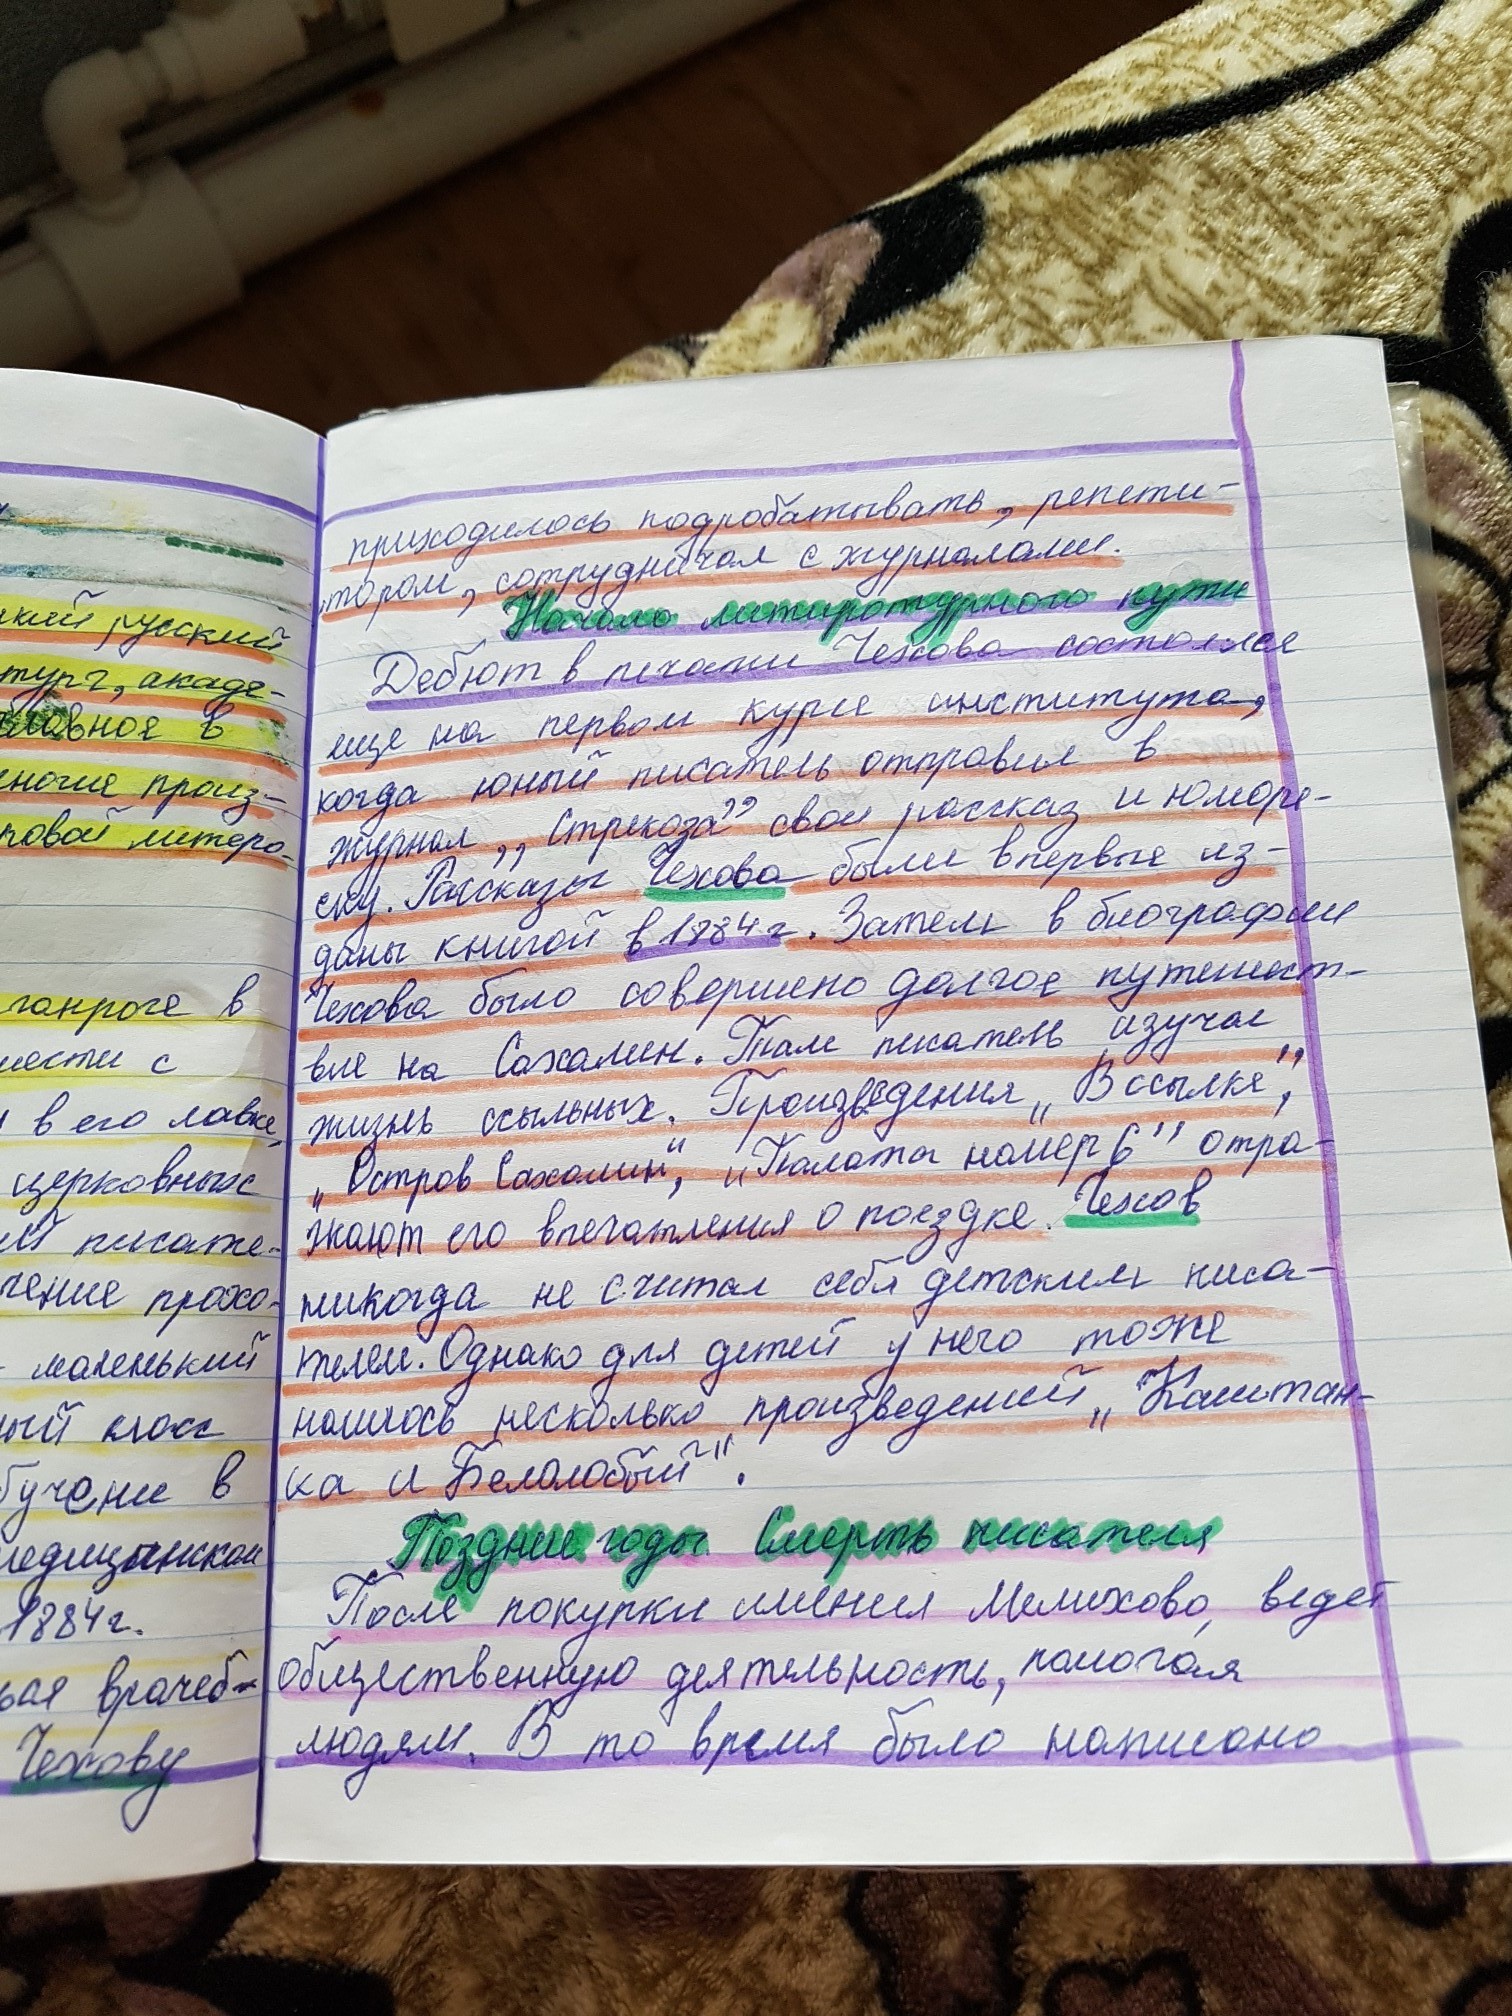 русский
тург, акаде-
главное в
многие произ-
ровой литера-
ганроге в
вместе с
в его лавке,
церковных
писате-
чение прохо-
маленький
ный класс
обучение в
медицинском
1884г.
врачеб-
Чехову
приходилось подробатывать, репети-
тором, сотрудничал с журналами.
Начало литиратурного пути
Дебют в печати Чехова состоялся
еще на первом курсе института,
когда юный писатель отправил в
журнал ,,Стрекоза” свой рассказ и юморе-
ску. Рассказы Чехова были впервые из-
даны книгой в 1884г. Затем в биографии
Чехова было совершено долгое путешест-
вие на Сахалин. Там писатель изучал
жизнь ссыльных. Произведения „В ссылке”,
„Остров Сахалин”, „Палата номер 6” отра-
жают его впечатления о поездке. Чехов
никогда не считал себя детским писа-
телем. Однако для детей у него тоже
нашлось несколько произведений „Каштан-
ка и Белолобый”.
Поздние годы. Смерть писателя
После покупки имения Мелихово, ведет
общественную деятельность, помогая
людям. В то время было написано